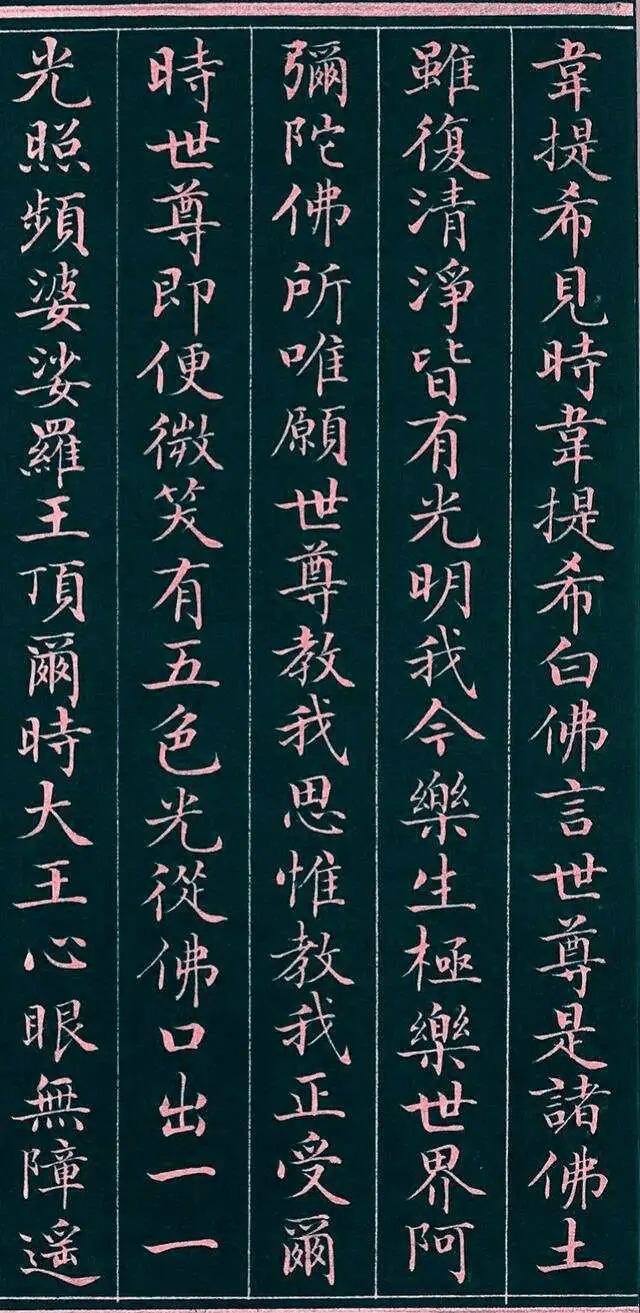 韋提希見時韋提希白佛言世尊是諸佛土
雖復清淨皆有光明我今樂生極樂世界阿
彌陀佛所唯願世尊教我思惟教我正受爾
時世尊即便微笑有五色光從佛口出一一
光照頻婆娑羅王頂爾時大王心眼無障遥